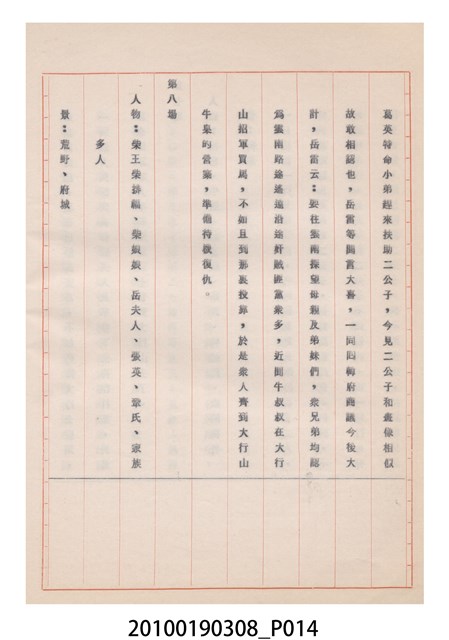 葛英特命小弟趕來扶助二公子，今見二公子和畫像相似
故敢相認也，岳雷等聞言大喜，一同回轉府商議今後大
計，岳雷云：要往雲南探望母親及弟妹們，衆兄弟均認
為雲南路途遙遠沿途奸賊匪黨衆多，近聞牛叔叔在大行
山招軍買馬，不如且到那裏投靠，於是衆人齊到大行山
牛皋的營寨，準備待機復仇。
第八場
人物：柴王柴排福、柴娘娘、岳夫人、張英、鞏氏、家族
多人
景：荒野、府城
20100190308_P014